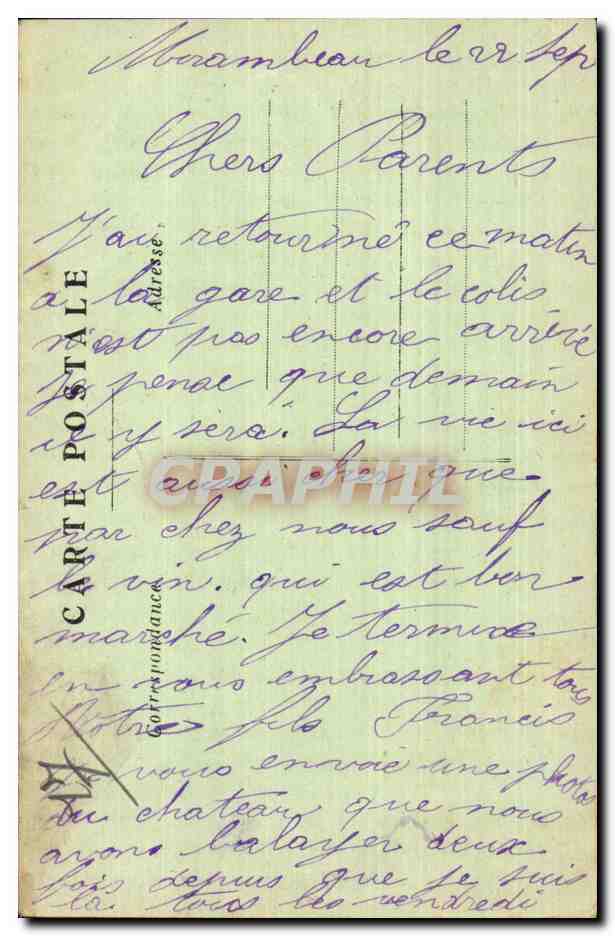 Mirambeau le 22 Sep
Chers Parents
J'ai retourné ce matin
a la gare et le colis
n'est pas encore arrivé
Je pense que demain
il y sera. La vie ici
est aussi cher que
par chez nous sauf
le vin. qui est bon
marché. Je termine
en vous embrassant tous
Votre fils Francis
vous envoie une photos
du chateau que nous
avons balayer deux
fois depuis que je suis
la tous les vendredi
CARTE POSTALE
Correspondance
Adresse
17
CPARPHIL